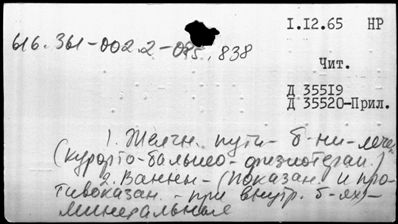 1.12.65 НР
616.361-002.2-085.838
Чит.
Д 35519
Д 35520-Прил.
1. Желчн. пути - б-ни - лечен.
(курорто-бальнео-физиотерап.)
2. Ванны - (показан. и про-
тивоказан. - при внутр. б-ях) -
минеральные